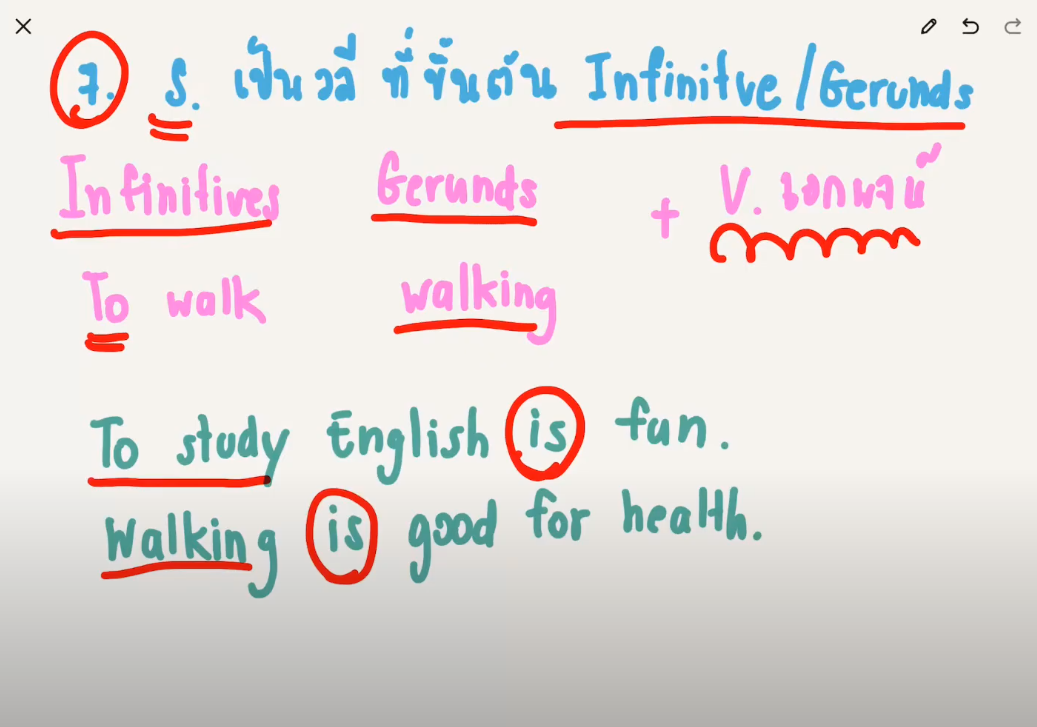 7. S. เป็นวลี ที่ขึ้นต้น Infinitve/Gerunds
Infinitives Gerunds + V. เอกพจน์
To walk walking
To study English is fun.
Walking is good for health.